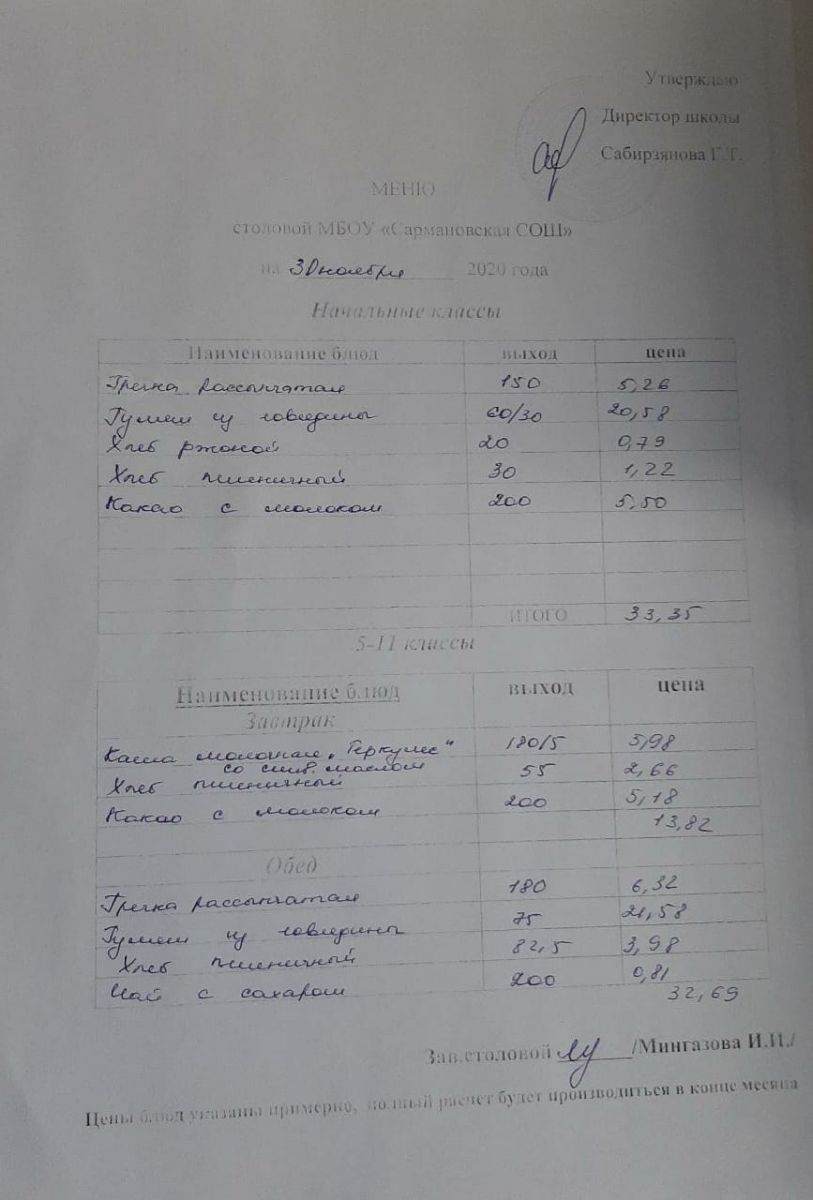 Утверждаю
Директор школы
Сабирзянова Г.Т.
МЕНЮ
столовой МБОУ «Сармановская СОШ»
на 30 ноября 2020 года
Начальные классы
Наименование блюд выход цена
Гречка рассыпчатая 150 5,26
Гуляш из говядины 60/30 20,58
Хлеб ржаной 20 0,79
Хлеб пшеничный 30 1,22
Какао с молоком 200 5,50
ИТОГО 33,35
5-11 классы
Наименование блюд выход цена
Завтрак
Каша молочная „Геркулес“ 180/5 5,98
со слив. маслом
Хлеб пшеничный 55 2,66
Какао с молоком 200 5,18
13,82
Обед
Гречка рассыпчатая 180 6,32
Гуляш из говядины 75 21,58
Хлеб пшеничный 82,5 3,98
Чай с сахаром 200 0,81
32,69
Зав.столовой /Мингазова И.И./
Цены блюд указаны примерно, полный расчет будет производиться в конце месяца